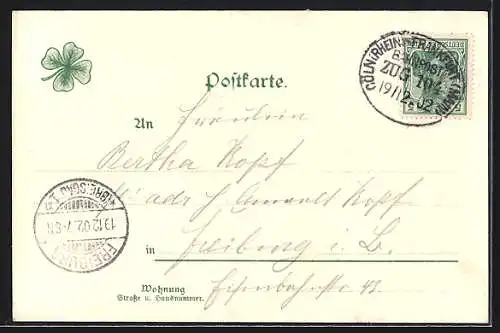 Postkarte.
CÖLN (RHEIN)-FRANKFURT (MAIN)
BAHNPOST
ZUG 104
19 12 02
An Fräulein
Bertha Kopf
adr H Anwalt Kopf
in Freiburg i. B.
Wohnung
Straße u. Hausnummer.
Eisenbahnstr. 43.
FREIBURG
19 12 02. 7-8
(BREISGAU)